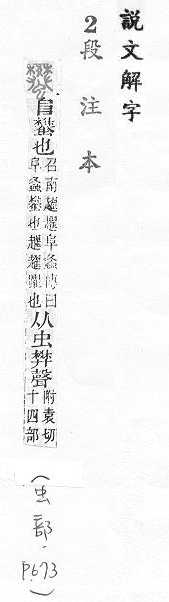 説文解字
2段注本
蠜 𨸏蠜也 召南趯趯阜螽傳曰阜螽蠜也趯趯躍也 从虫樊聲 附袁切十四部
(虫部, P.673)